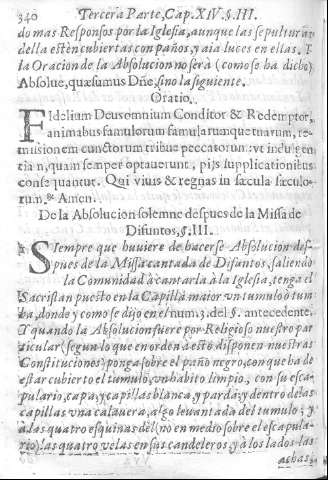 340 Tercera Parte, Cap. XIV. §. III.
do mas Responsos por la Iglesia, aunque las sepulturas
della estèn cubiertas con paños, y aia luces en ellas. I
la Oracion de la Absolucion no serà (como se ha dicho)
Absolue, quæsumus Dñe, sino la siguiente.
Oratio.
Fidelium Deus omnium Conditor & Redemptor,
animabus famulorum famularumque tuarum, re-
missionem cunctorum tribue peccatorum: vt indulgen
tiam, quam semper optauerunt, pijs supplicationibus
consequantur. Qui viuis & regnas in sæcula sæculo-
rum. Amen.
De la Absolucion solemne despues de la Missa de
Difuntos, §. III.
SIempre que huuiere de hacerse Absolucion des-
pues de la Missa cantada de Difuntos, saliendo
la Comunidad à cantarla à la Iglesia, tenga el
Sacristan puesto en la Capilla maior vn tumulo ò tum
ba, donde y como se dijo en el num. 3. del §. antecedente.
Y quando la Absolucion fuere por Religioso nuestro par
ticular (segun lo que en orden à esto disponen nuestras
Constituciones) ponga sobre el paño negro, con que ha de
estar cubierto el tumulo, vn habito limpio, con su esca-
pulario, capa, y capillas blanca, y parda; y dentro de las
capillas vna calauera, algo leuantada del tumulo; y
à las quatro esquinas dèl (no en medio sobre el escapula-
rio) las quatro velas en sus candeleros, y à los lados las
achas;